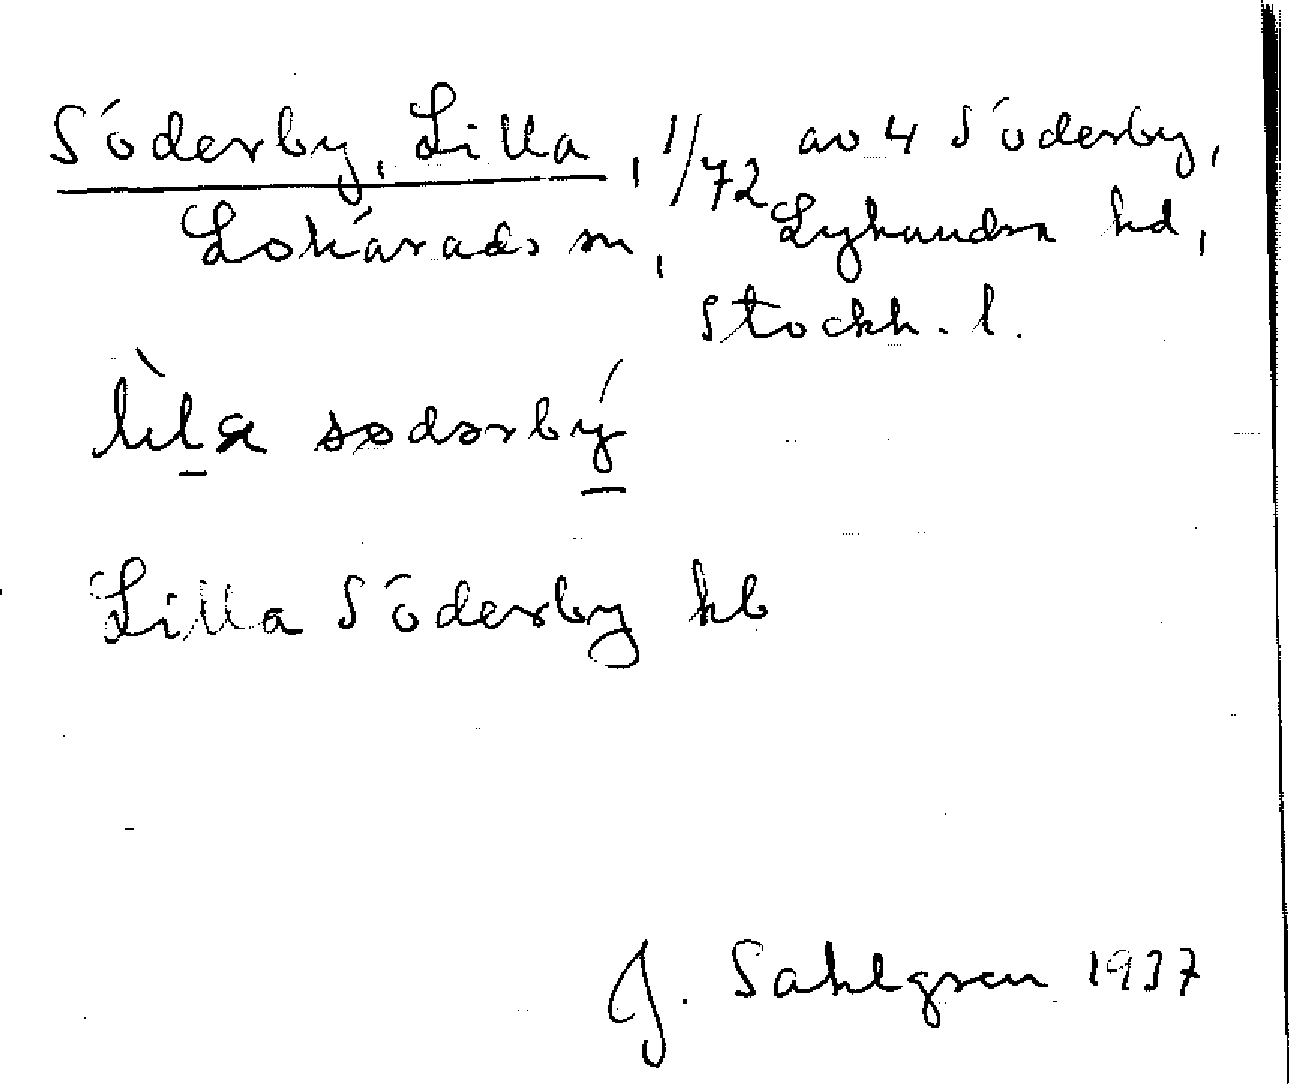 Söderby, Lilla, 1/72 av 4 Söderby,
Lohärads sn, Lyhundra hd,
Stockh. l.
lìla sødərbý
Lilla Söderby hb
J. Sahlgren 1937